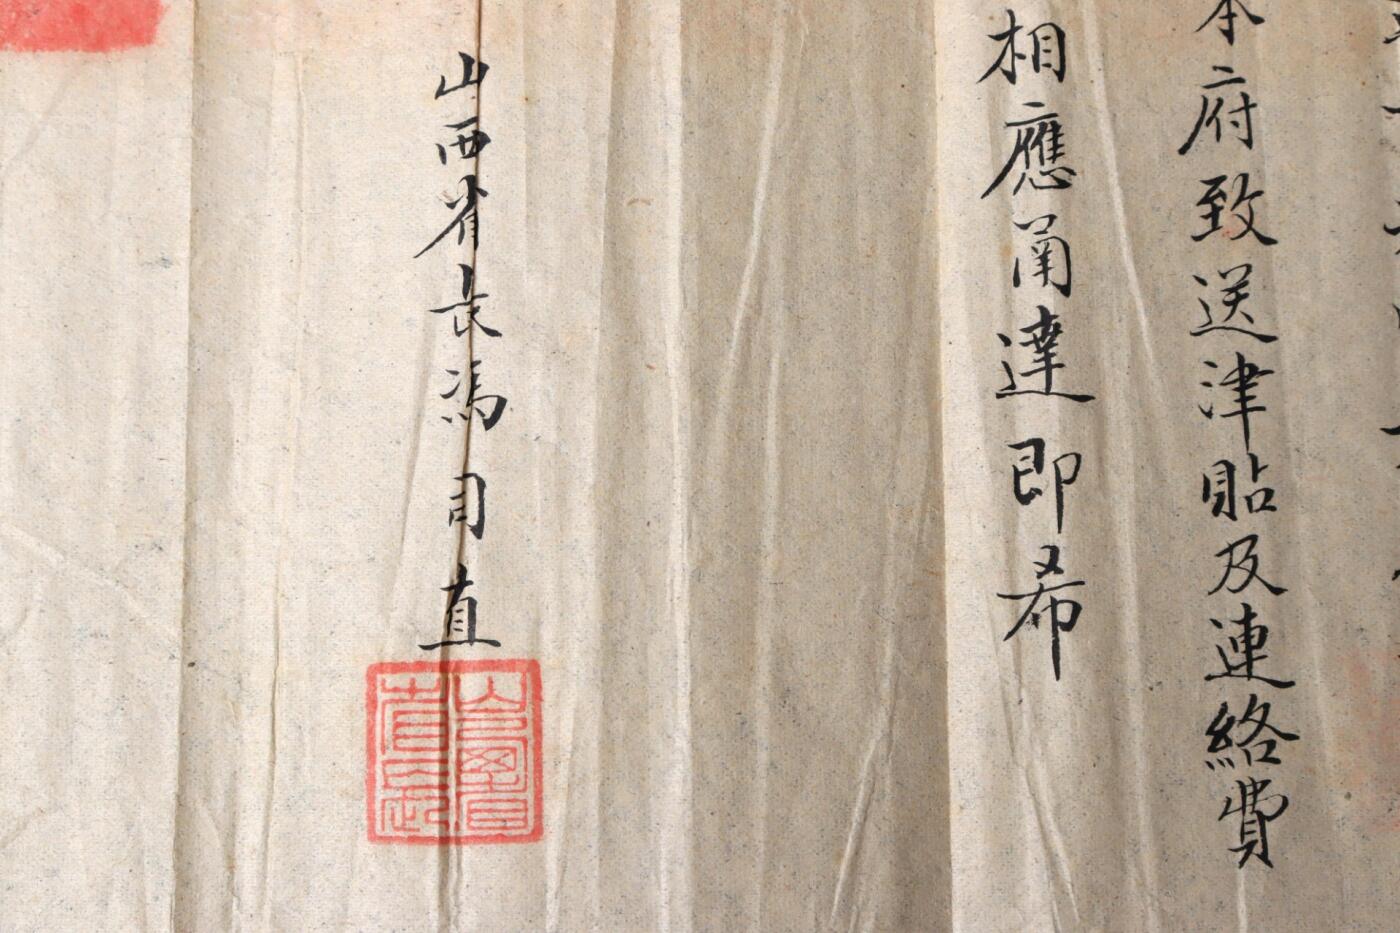 本府致送津貼及連絡費
相應函達即希
山西省長馮司直